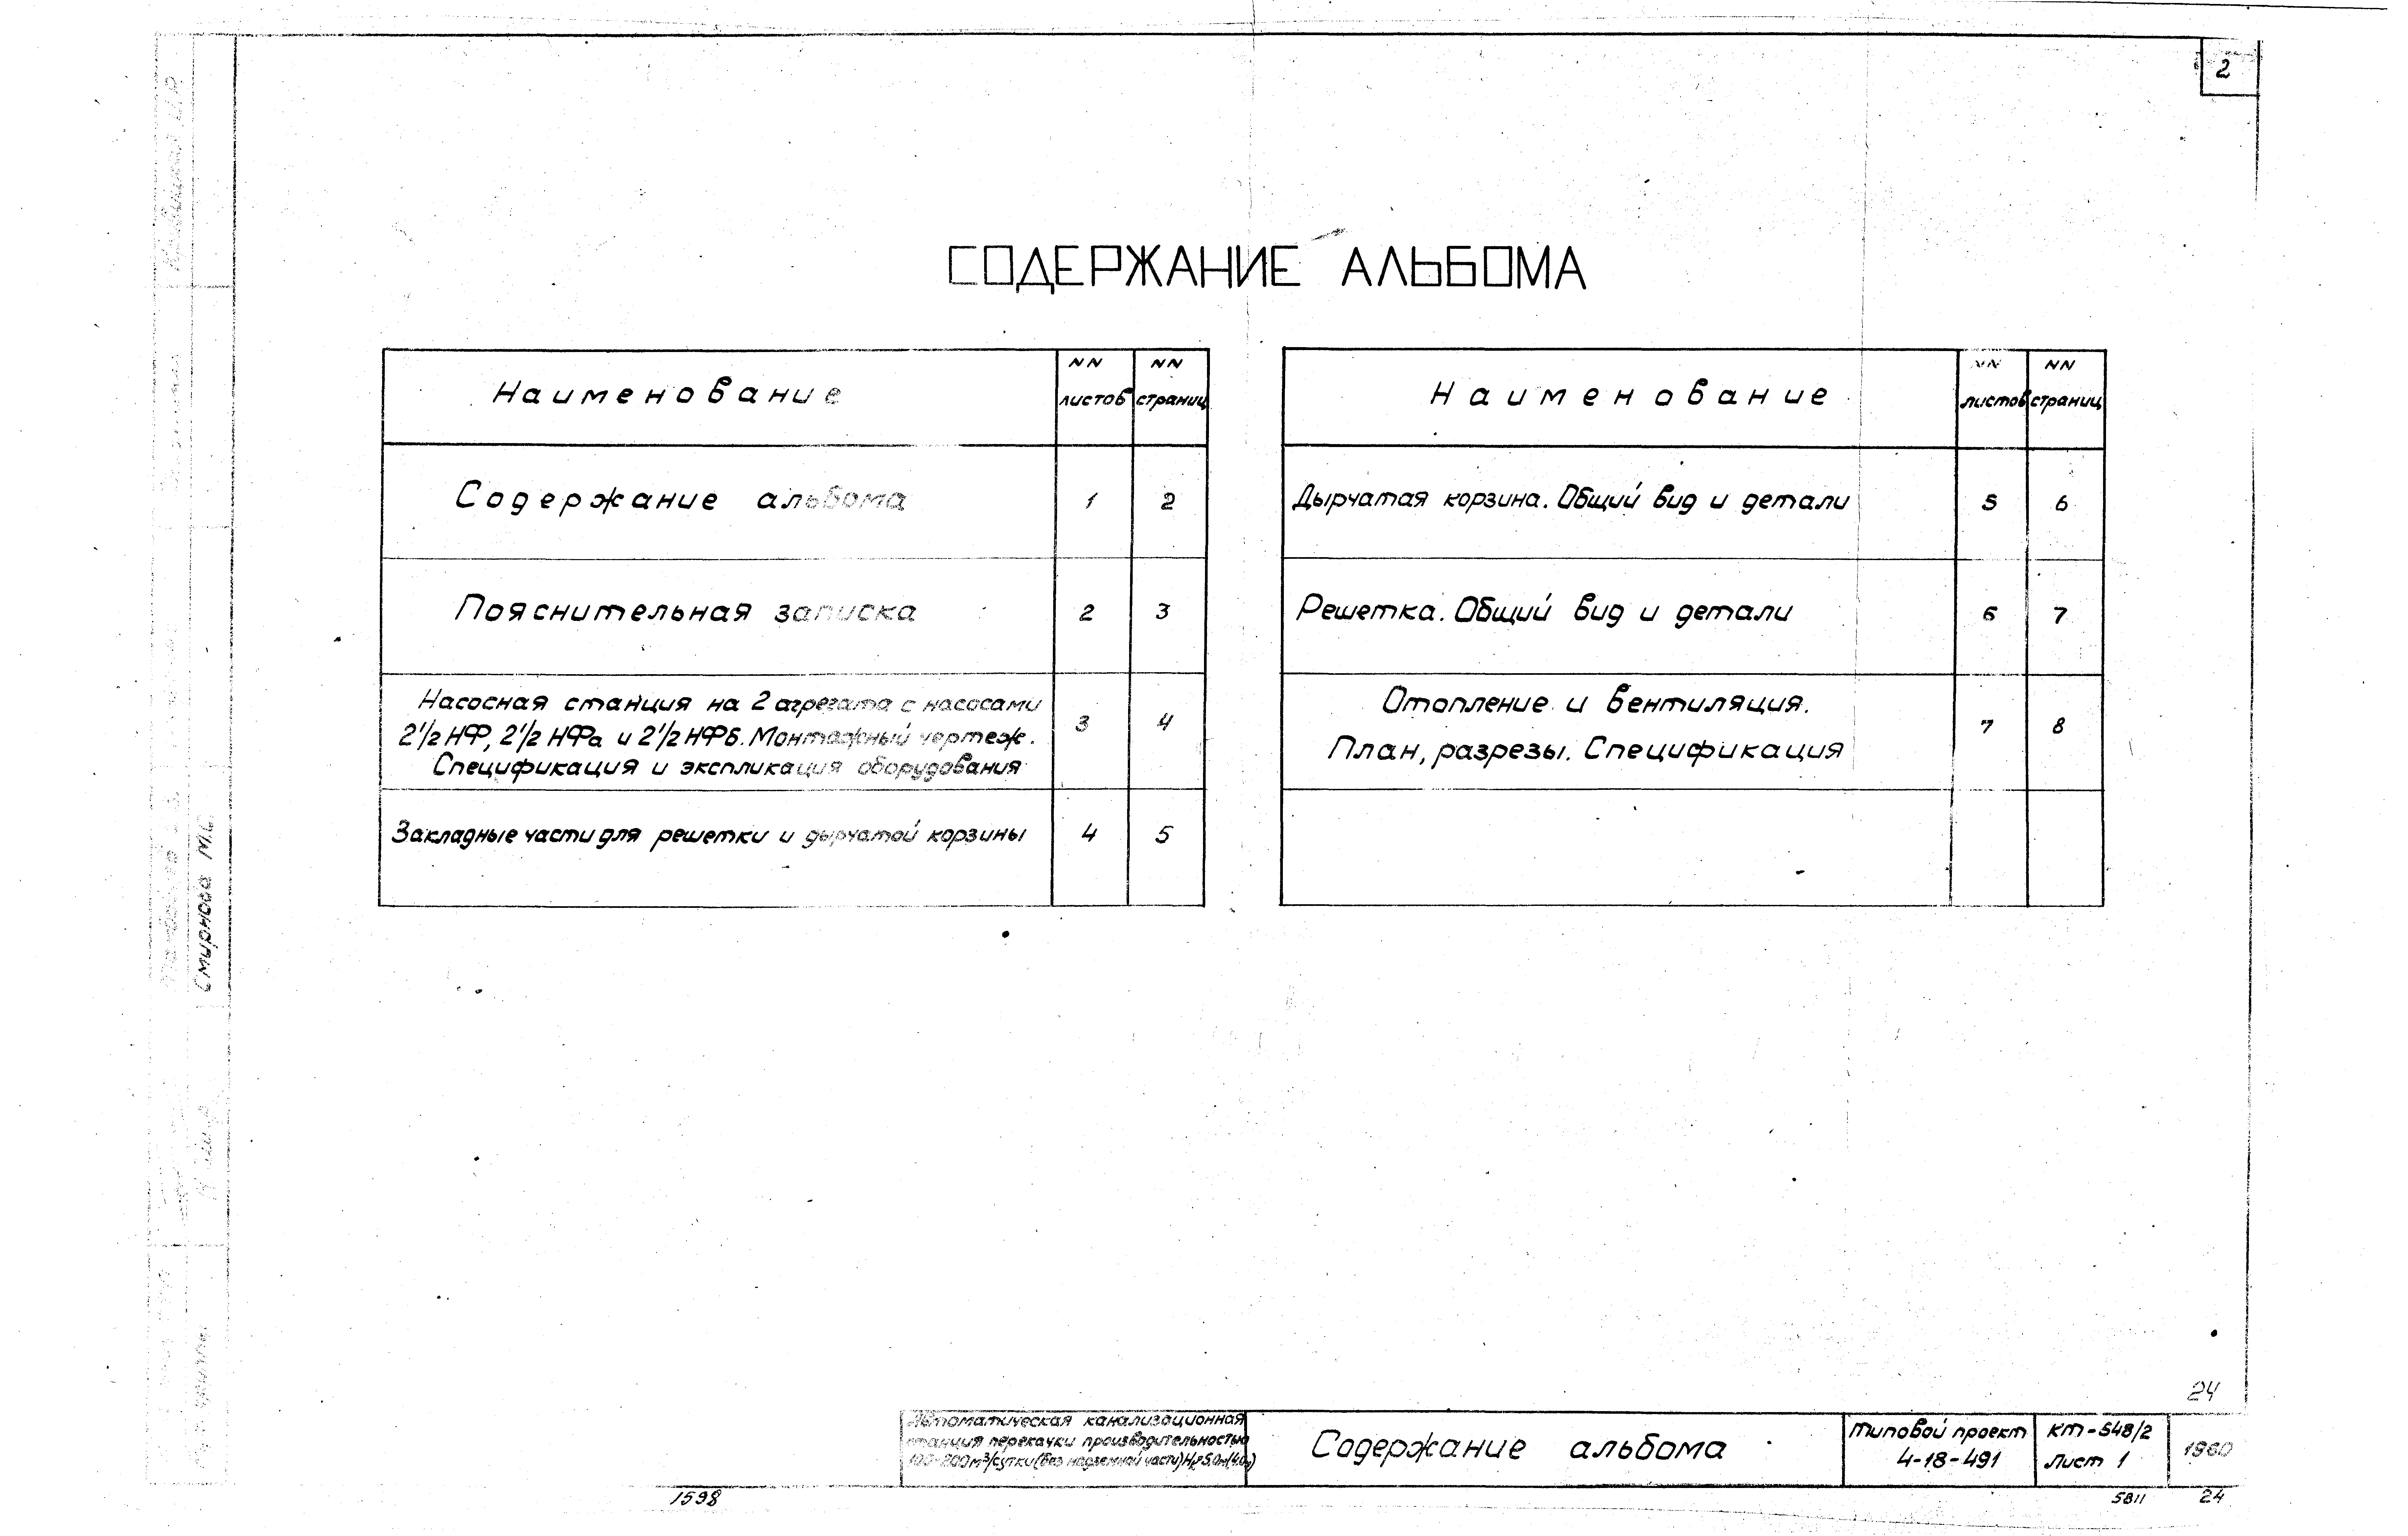 2
СОДЕРЖАНИЕ АЛЬБОМА
Наименование
NN листов
NN страниц
Содержание альбома 1 2
Пояснительная записка 2 3
Насосная станция на 2 агрегата с насосами
2½ НФ, 2½ НФа и 2½ НФб. Монтажный чертеж.
Спецификация и экспликация оборудования
3 4
Закладные части для решетки и дырчатой корзины 4 5
Наименование
NN листов
NN страниц
Дырчатая корзина. Общий вид и детали 5 6
Решетка. Общий вид и детали 6 7
Отопление и вентиляция.
План, разрезы. Спецификация
7 8
Смирнова
24
Автоматическая канализационная
станция перекачки производительностью
100-200 м³/сутки (без надземной части)
Содержание альбома
Типовой проект
4-18-491
КТ-548/2
Лист 1
1960
1598
5811 24